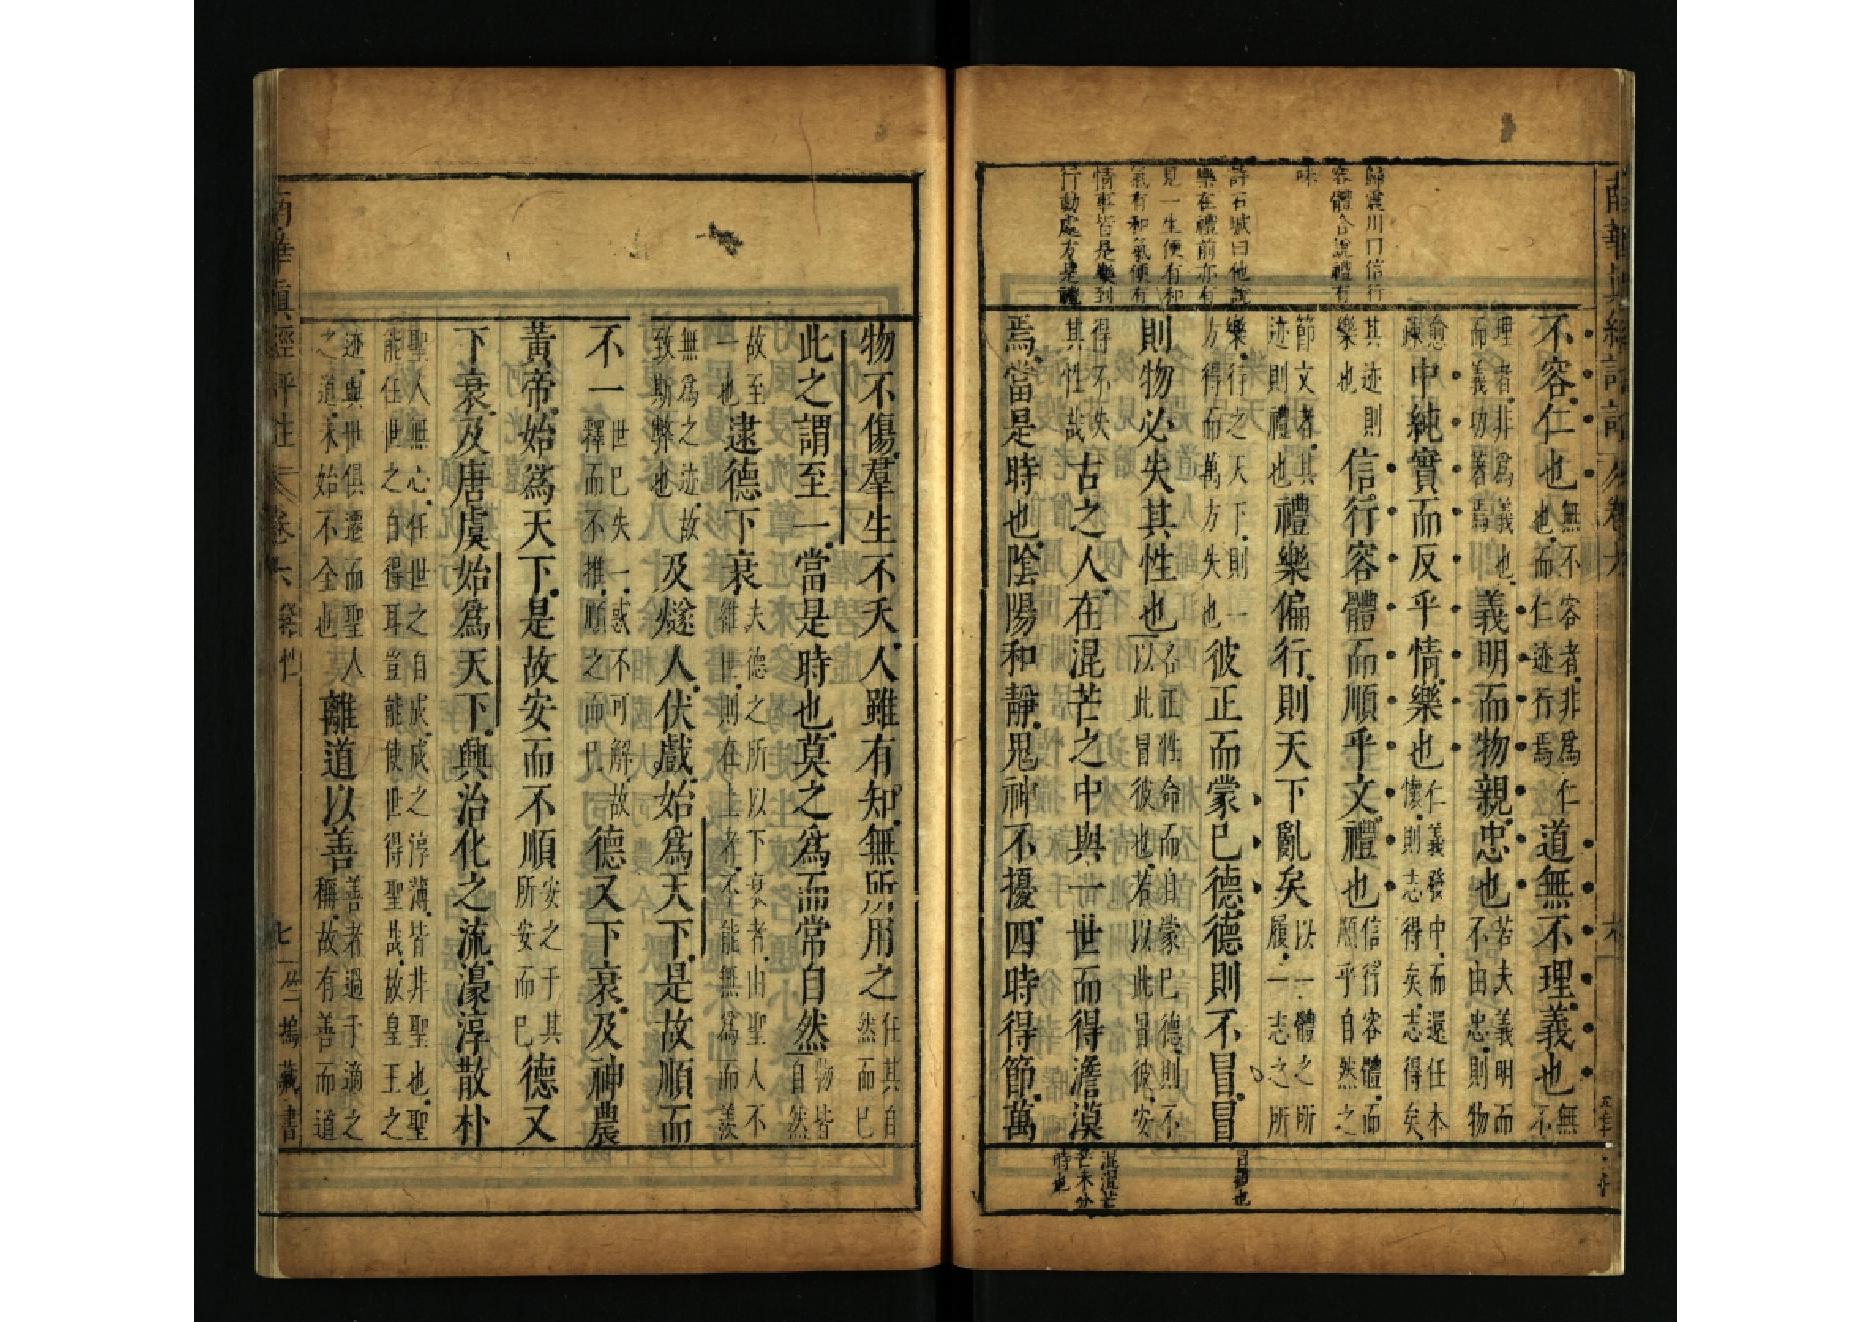 南華眞經評註
歸震川曰信行
容體合說禮有
味
許石城曰他說
樂在禮前亦有
見一生便有和
氣有和氣便有
情事皆是樂到
行動處方是禮
不容仁也無不容者非爲仁也而仁迹行焉道無不理義也無不
理者非爲義也而義功著焉義明而物親忠也若夫義明而不由忠則物
愈疎中純實而反乎情樂也仁義發中而還任本懷則志得矣志得矣
其迹則樂也信行容體而順乎文禮也信行容體而順乎自然之
節文者其迹則禮也禮樂偏行則天下亂矣以一體之所履一志之所
樂行之天下則一方得而萬方失也彼正而蒙巳德德則不冒冒
則物必失其性也各正性命而自蒙巳德則不以此冒彼也若以此冒彼安
得不失其性哉古之人在混芒之中與一世而得澹漠
焉當是時也陰陽和靜鬼神不擾四時得節萬
冒覆也
混混芒
芒未分
時也
物不傷羣生不夭人雖有知無所用之任其自然而已
此之謂至一當是時也莫之爲而常自然物皆自然
故至一也逮德下衰夫德之所以下衰者由聖人不繼世則在上者不能無爲而羨
無爲之迹故致斯弊也及燧人伏戲始爲天下是故順而
不一世已失一惑不可解故釋而不推順之而已德又下衰及神農
黃帝始爲天下是故安而不順安之于其所安而已德又
下衰及唐虞始爲天下興治化之流濠淳散朴
聖人無心任世之自成成之淳薄皆非聖也聖能任世之自得耳豈能使世得聖哉故皇王之
迹與世俱遷而聖人之道未始不全也離道以善善者過于適之稱故有善而道
南華眞經評註 卷六 繕性 七 竺塢藏書